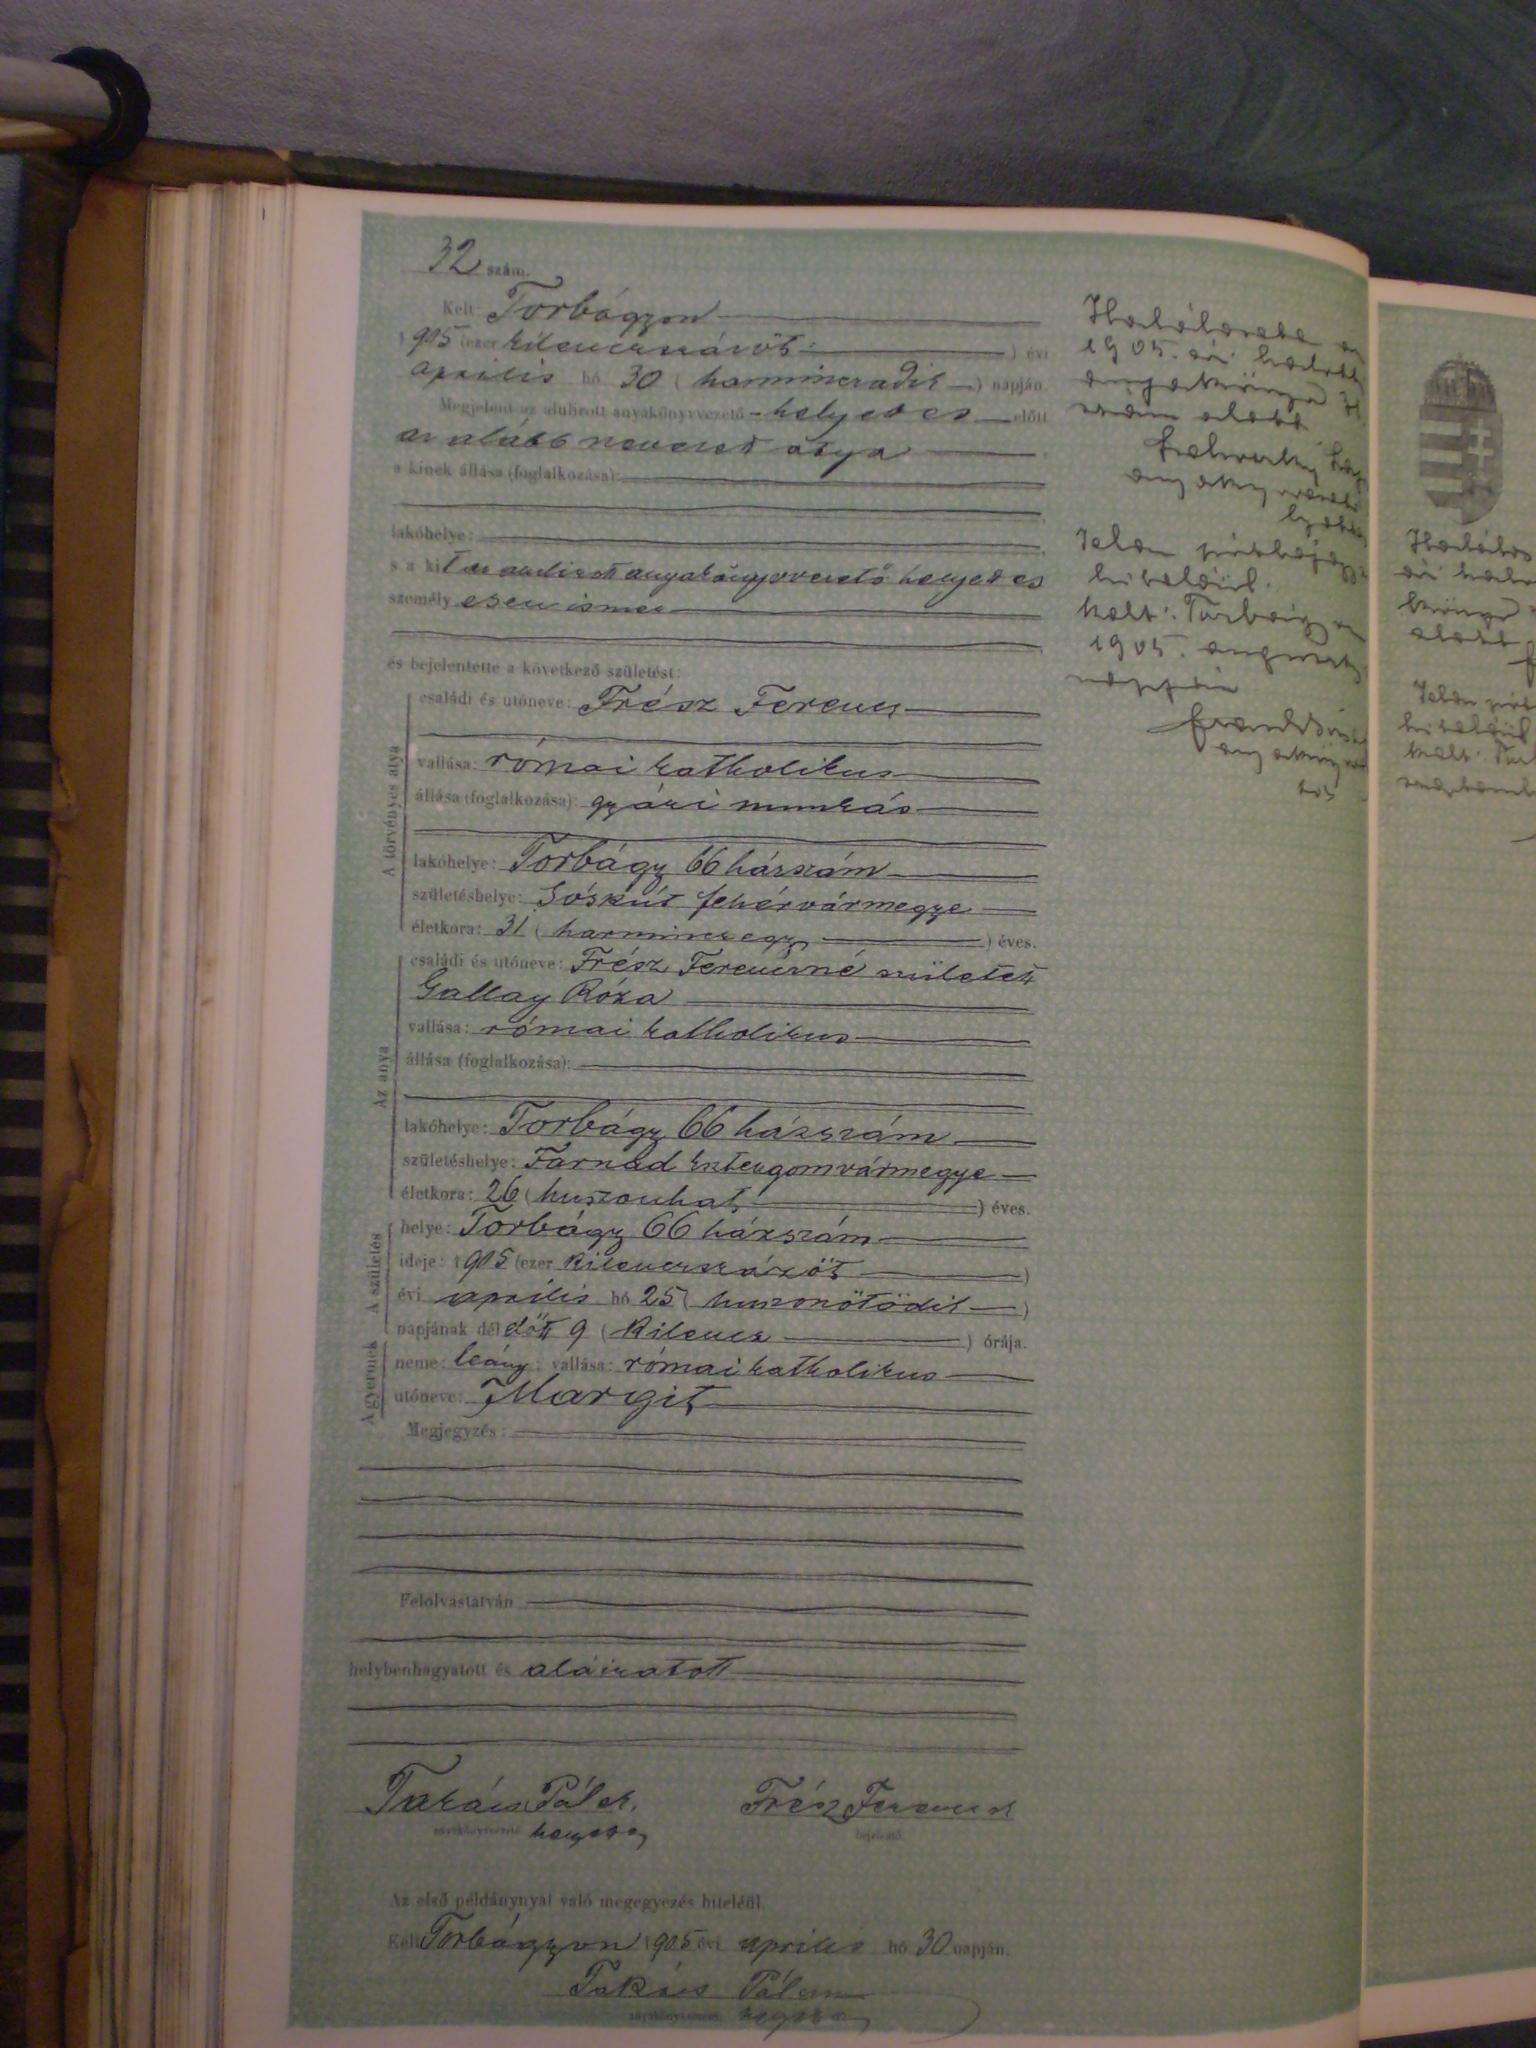 32 szám.
Kelt Torbágyon
1905 (ezer kilenczszázöt) évi
április hó 30 (harminczadik) napján.
Megjelent az alulírott anyakönyvvezető-helyettes előtt
az alább nevezett atya
a kinek állása (foglalkozása):
lakóhelye:
s a kit az aulirott anyakönyvvezető helyettes
személyesen ismer
és bejelentette a következő születést:
A törvényes atya
családi és utóneve: Frész Ferencz
vallása: római katholikus
állása (foglalkozása): gyári munkás
lakóhelye: Torbágy 66 házszám
születéshelye: Sóskút fehérvármegye
életkora: 31 (harminczegy) éves.
Az anya
családi és utóneve: Frész Ferenczné született
Gallay Róza
vallása: római katholikus
állása (foglalkozása):
lakóhelye: Torbágy 66 házszám
születéshelye: Farnad Esztergomvármegye
életkora: 26 (huszonhat) éves.
A születés
helye: Torbágy 66 házszám
ideje: 1905 (ezer kilenczszázöt)
évi április hó 25 (huszonötödik)
napjának délelőtt 9 (kilencz) órája.
A gyermek
neme: leány; vallása: római katholikus
utóneve: Margit
Megjegyzés:
Felolvastatván
helybenhagyatott és aláiratott
Takács Pál
anyakönyvvezető
Frész Ferencz
bejelentő.
Az első példánynyal való megegyezés hiteléül.
Kelt Torbágyon 1905 évi április hó 30 napján.
Takács Pál
anyakönyvvezető
1905. évi
anyakönyv
szám alatt
Jelen
hiteléül.
Kelt: Torbágyon
1905.
napján